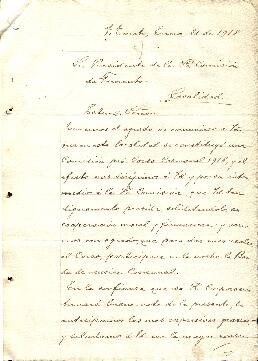 Enero 21 de 1918
Sr. Presidente de la H. Comisión
de Fomento.
Localidad.
Tenemos el agrado de comunicar a
localidad se constituyó una
Comisión pró Corso Carnaval 1918, y al
efecto nos dirigimos á Vd. y por su inter
medio á la H. Comisión, que Vd. tan
dignamente preside solicitándole su
cooperación moral y financiera, y
mos con agrado que para dar
al Corso, participe en la noche la Ban
da de música Comunal.
En la confianza que su H. Corporación
tomará buena nota de la presente, le
anticipamos las más expresivas gracias
y saludamos a Vd. con la mayor